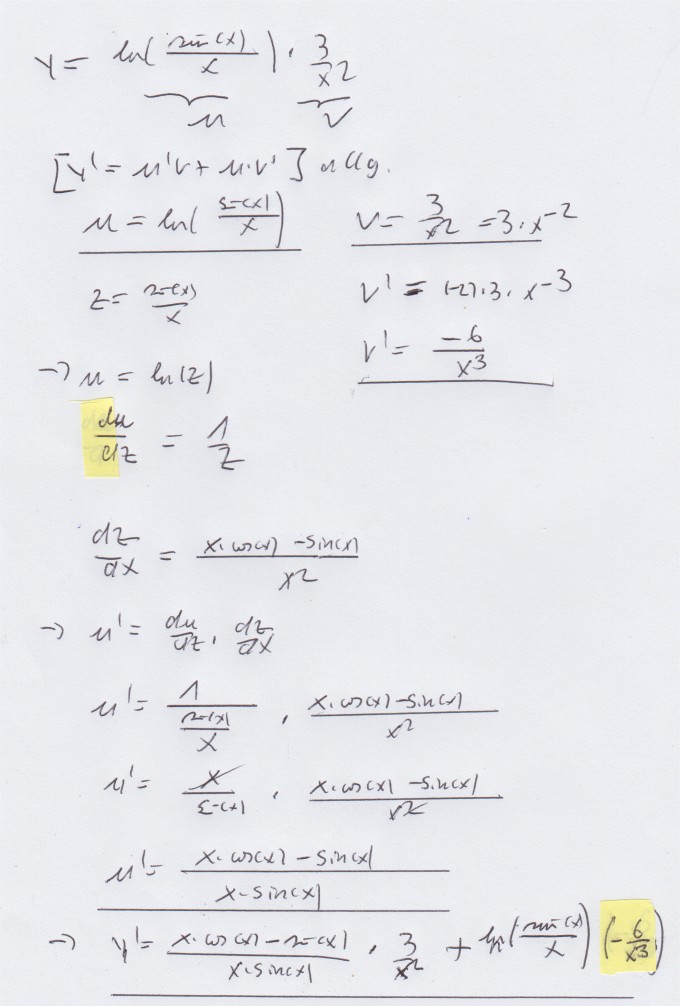 y = ln( sin(x)/x ) · 3/x2
u v
[y' = u'v + u·v'] allg.
u = ln( sin(x)/x ) v = 3/x2 = 3·x-2
z = sin(x)/x v' = (-2)·3·x-3
→ u = ln(z) v' = -6/x3
du/dz = 1/z
dz/dx = x·cos(x) - sin(x)/x2
→ u' = du/dz · dz/dx
u' = 1/sin(x)/x · x·cos(x) - sin(x)/x2
u' = x/sin(x) · x·cos(x) - sin(x)/x2
u' = x·cos(x) - sin(x)/x·sin(x)
→ y' = x·cos(x) - sin(x)/x·sin(x) · 3/x2 + ln( sin(x)/x ) (-6/x3)